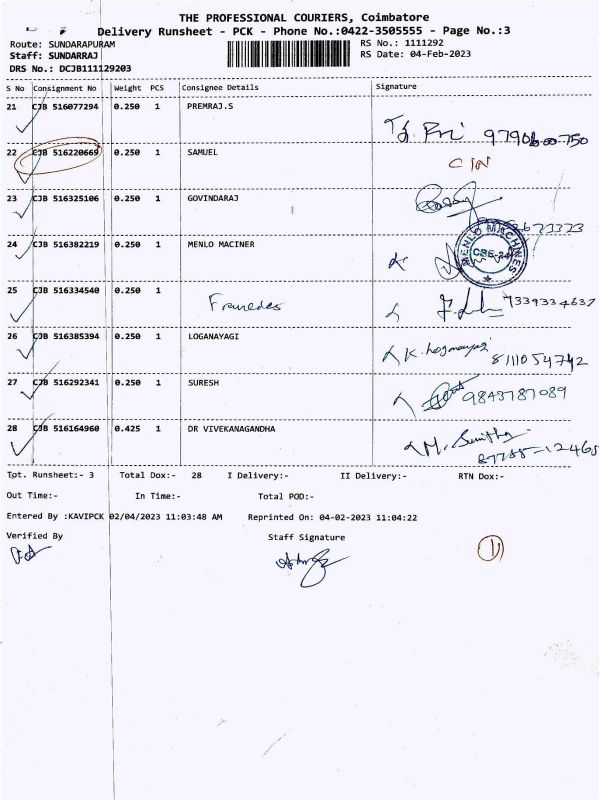 THE PROFESSIONAL COURIERS, Coimbatore
Delivery Runsheet - PCK - Phone No.:0422-3505555 - Page No.:3
Route: SUNDARAPURAM
RS No.: 1111292
Staff: SUNDARRAJ
RS Date: 04-Feb-2023
DRS No.: DCJB111129203
S No Consignment No Weight PCS Consignee Details Signature
21 CJB 516077294 0.250 1 PREMRAJ.S
22 CJB 516220669 0.250 1 SAMUEL
23 CJB 516325106 0.250 1 GOVINDARAJ
24 CJB 516382219 0.250 1 MENLO MACINER
MENLO MACHINES
CBE-24
25 CJB 516334540 0.250 1 7339334637
26 CJB 516385394 0.250 1 LOGANAYAGI 8111054742
27 CJB 516292341 0.250 1 SURESH 9843787089
28 CJB 516164960 0.425 1 DR VIVEKANAGANDHA
Tot. Runsheet:- 3 Total Dox:- 28 I Delivery:- II Delivery:- RTN Dox:-
Out Time:- In Time:- Total POD:-
Entered By :KAVIPCK 02/04/2023 11:03:48 AM Reprinted On: 04-02-2023 11:04:22
Verified By Staff Signature
1